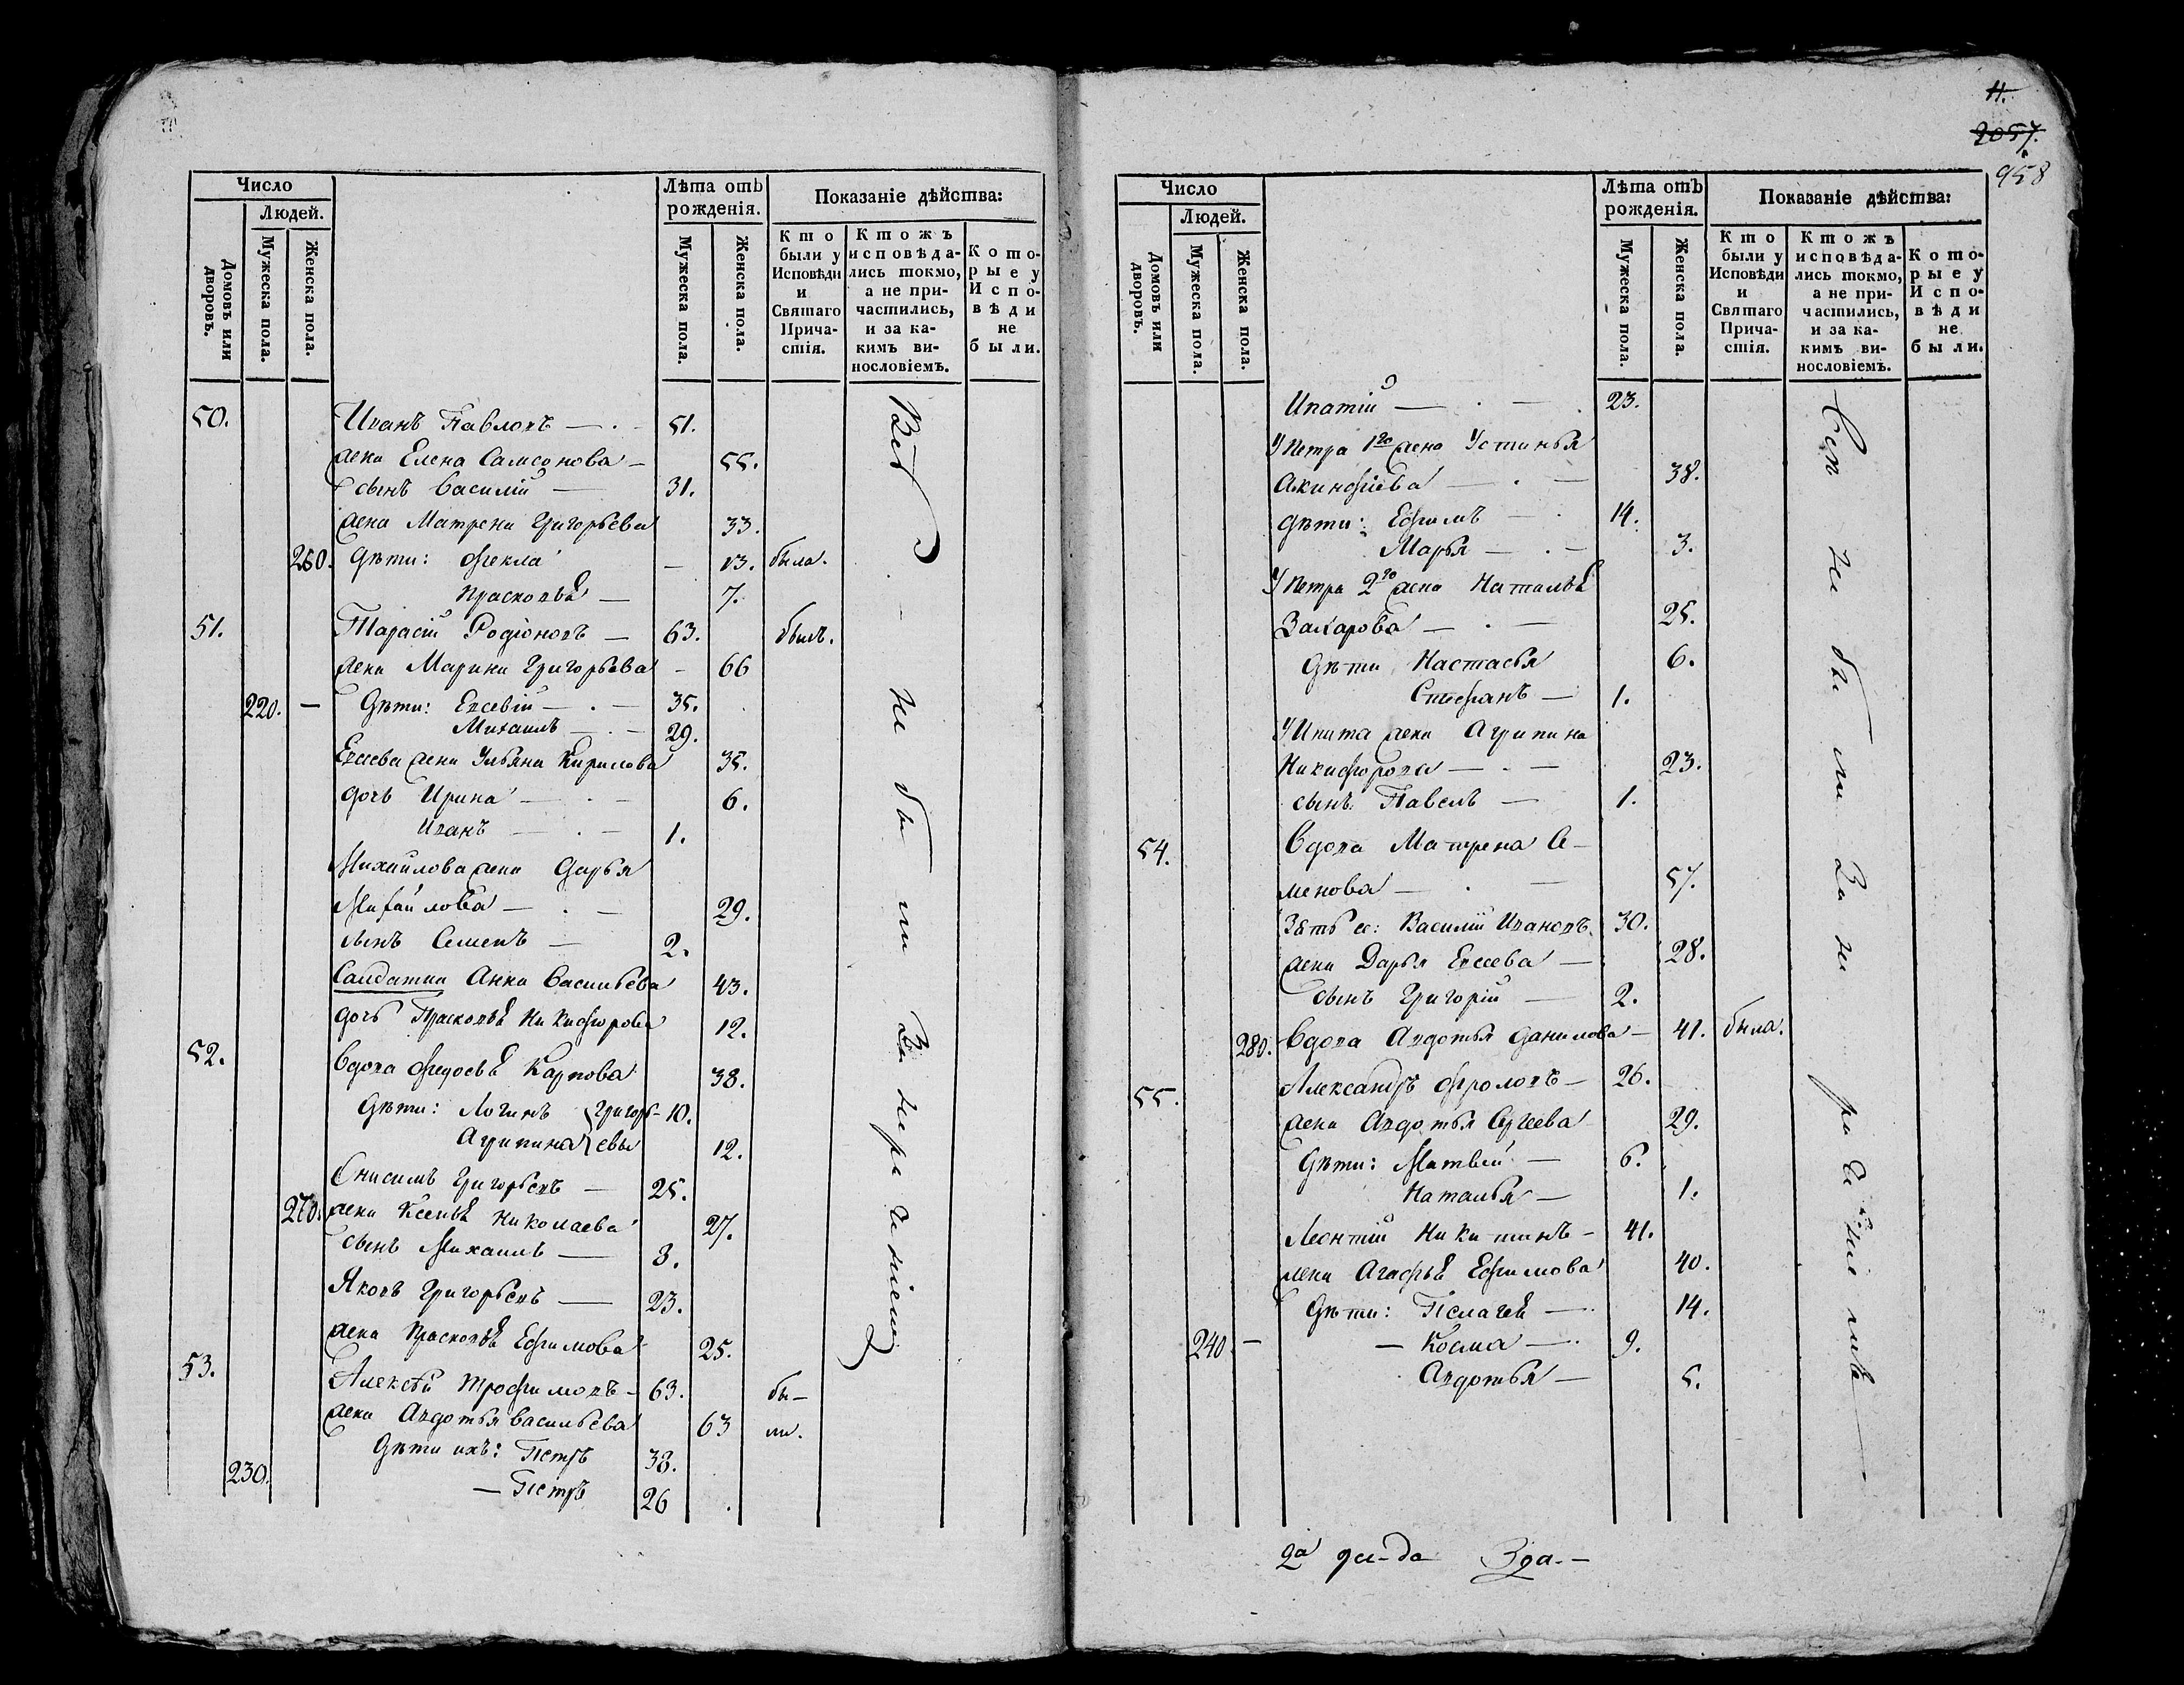 Число
Людей.
Домовъ или дворовъ.
Мужеска пола.
Женска пола.
Лѣта отъ рожденія.
Мужеска пола.
Женска пола.
Показаніе дѣйства:
Кто были у Исповѣди и Святаго Прича-стія.
Ктожъ исповѣда-лись токмо, а не при-частились, и за ка-кимъ ви-нословіемъ.
Кото-рые у Испо-вѣди не были.
50. Иванъ Павловъ — 51.
жена Елена Самсонова — 55.
сынъ Василій — 31.
жена Матрена Григорьева 33.
260. Дѣти: Фекла — 13. была.
Прасковья — 7.
51. Тарасій Родіоновъ — 63. былъ.
жена Марина Григорьева — 66
220. — Дѣти: Евсевій — 35.
Михаилъ — 29.
Евсева жена Ульяна Кирилова 35.
дочь Ирина — 6.
Иванъ — 1.
Михайлова жена Дарья
Михайлова — 29.
сынъ Семенъ — 2.
Салдатка Анна Васильева 43.
дочь Прасковья Никифорова 12.
52. Вдова Федосья Карпова 38.
Дѣти: Логинъ } Григорь- 10.
Агрипина } евы 12.
Онисимъ Григорьевъ — 25.
270. жена Ксенья Николаева 27.
сынъ Михаилъ — 3.
Яковъ Григорьевъ — 23.
жена Прасковья Ефимова 25.
53. Алексѣй Трофимовъ — 63. бы-
жена Авдотья Васильева 63 ли.
Дѣти ихъ: Петръ 38.
230. — Петръ 26
Всѣ не были за нераченіемъ
11.
2057.
958
Число
Людей.
Домовъ или дворовъ.
Мужеска пола.
Женска пола.
Лѣта отъ рожденія.
Мужеска пола.
Женска пола.
Показаніе дѣйства:
Кто были у Исповѣди и Святаго Прича-стія.
Ктожъ исповѣда-лись токмо, а не при-частились, и за ка-кимъ ви-нословіемъ.
Кото-рые у Испо-вѣди не были.
Ипатій — 23.
У Петра 1го жена Устинья
Акинфіева — 38.
Дѣти: Ефимъ — 14.
Марья — 3.
У Петра 2го жена Наталья
Захарова — 25.
Дѣти Настасья 6.
Стефанъ — 1.
У Ипата жена Агрипина
Никифорова — 23.
сынъ Павелъ — 1.
54. Вдова Матрена Се-
менова — 57.
Зять ее: Василій Ивановъ 30.
жена Дарья Евсева — 28.
сынъ Григорій — 2.
280. Вдова Авдотья Данилова — 41. была.
55. Александръ Фроловъ — 26.
жена Авдотья Сергеева 29.
Дѣти: Матвей — 6.
Наталья — 1.
Леонтій Никитинъ — 41.
жена Агафья Ефимова 40.
Дѣти: Пелагея — 14.
240 — — Косма — 9.
Авдотья — 5.
Всѣ не были за нераченіемъ